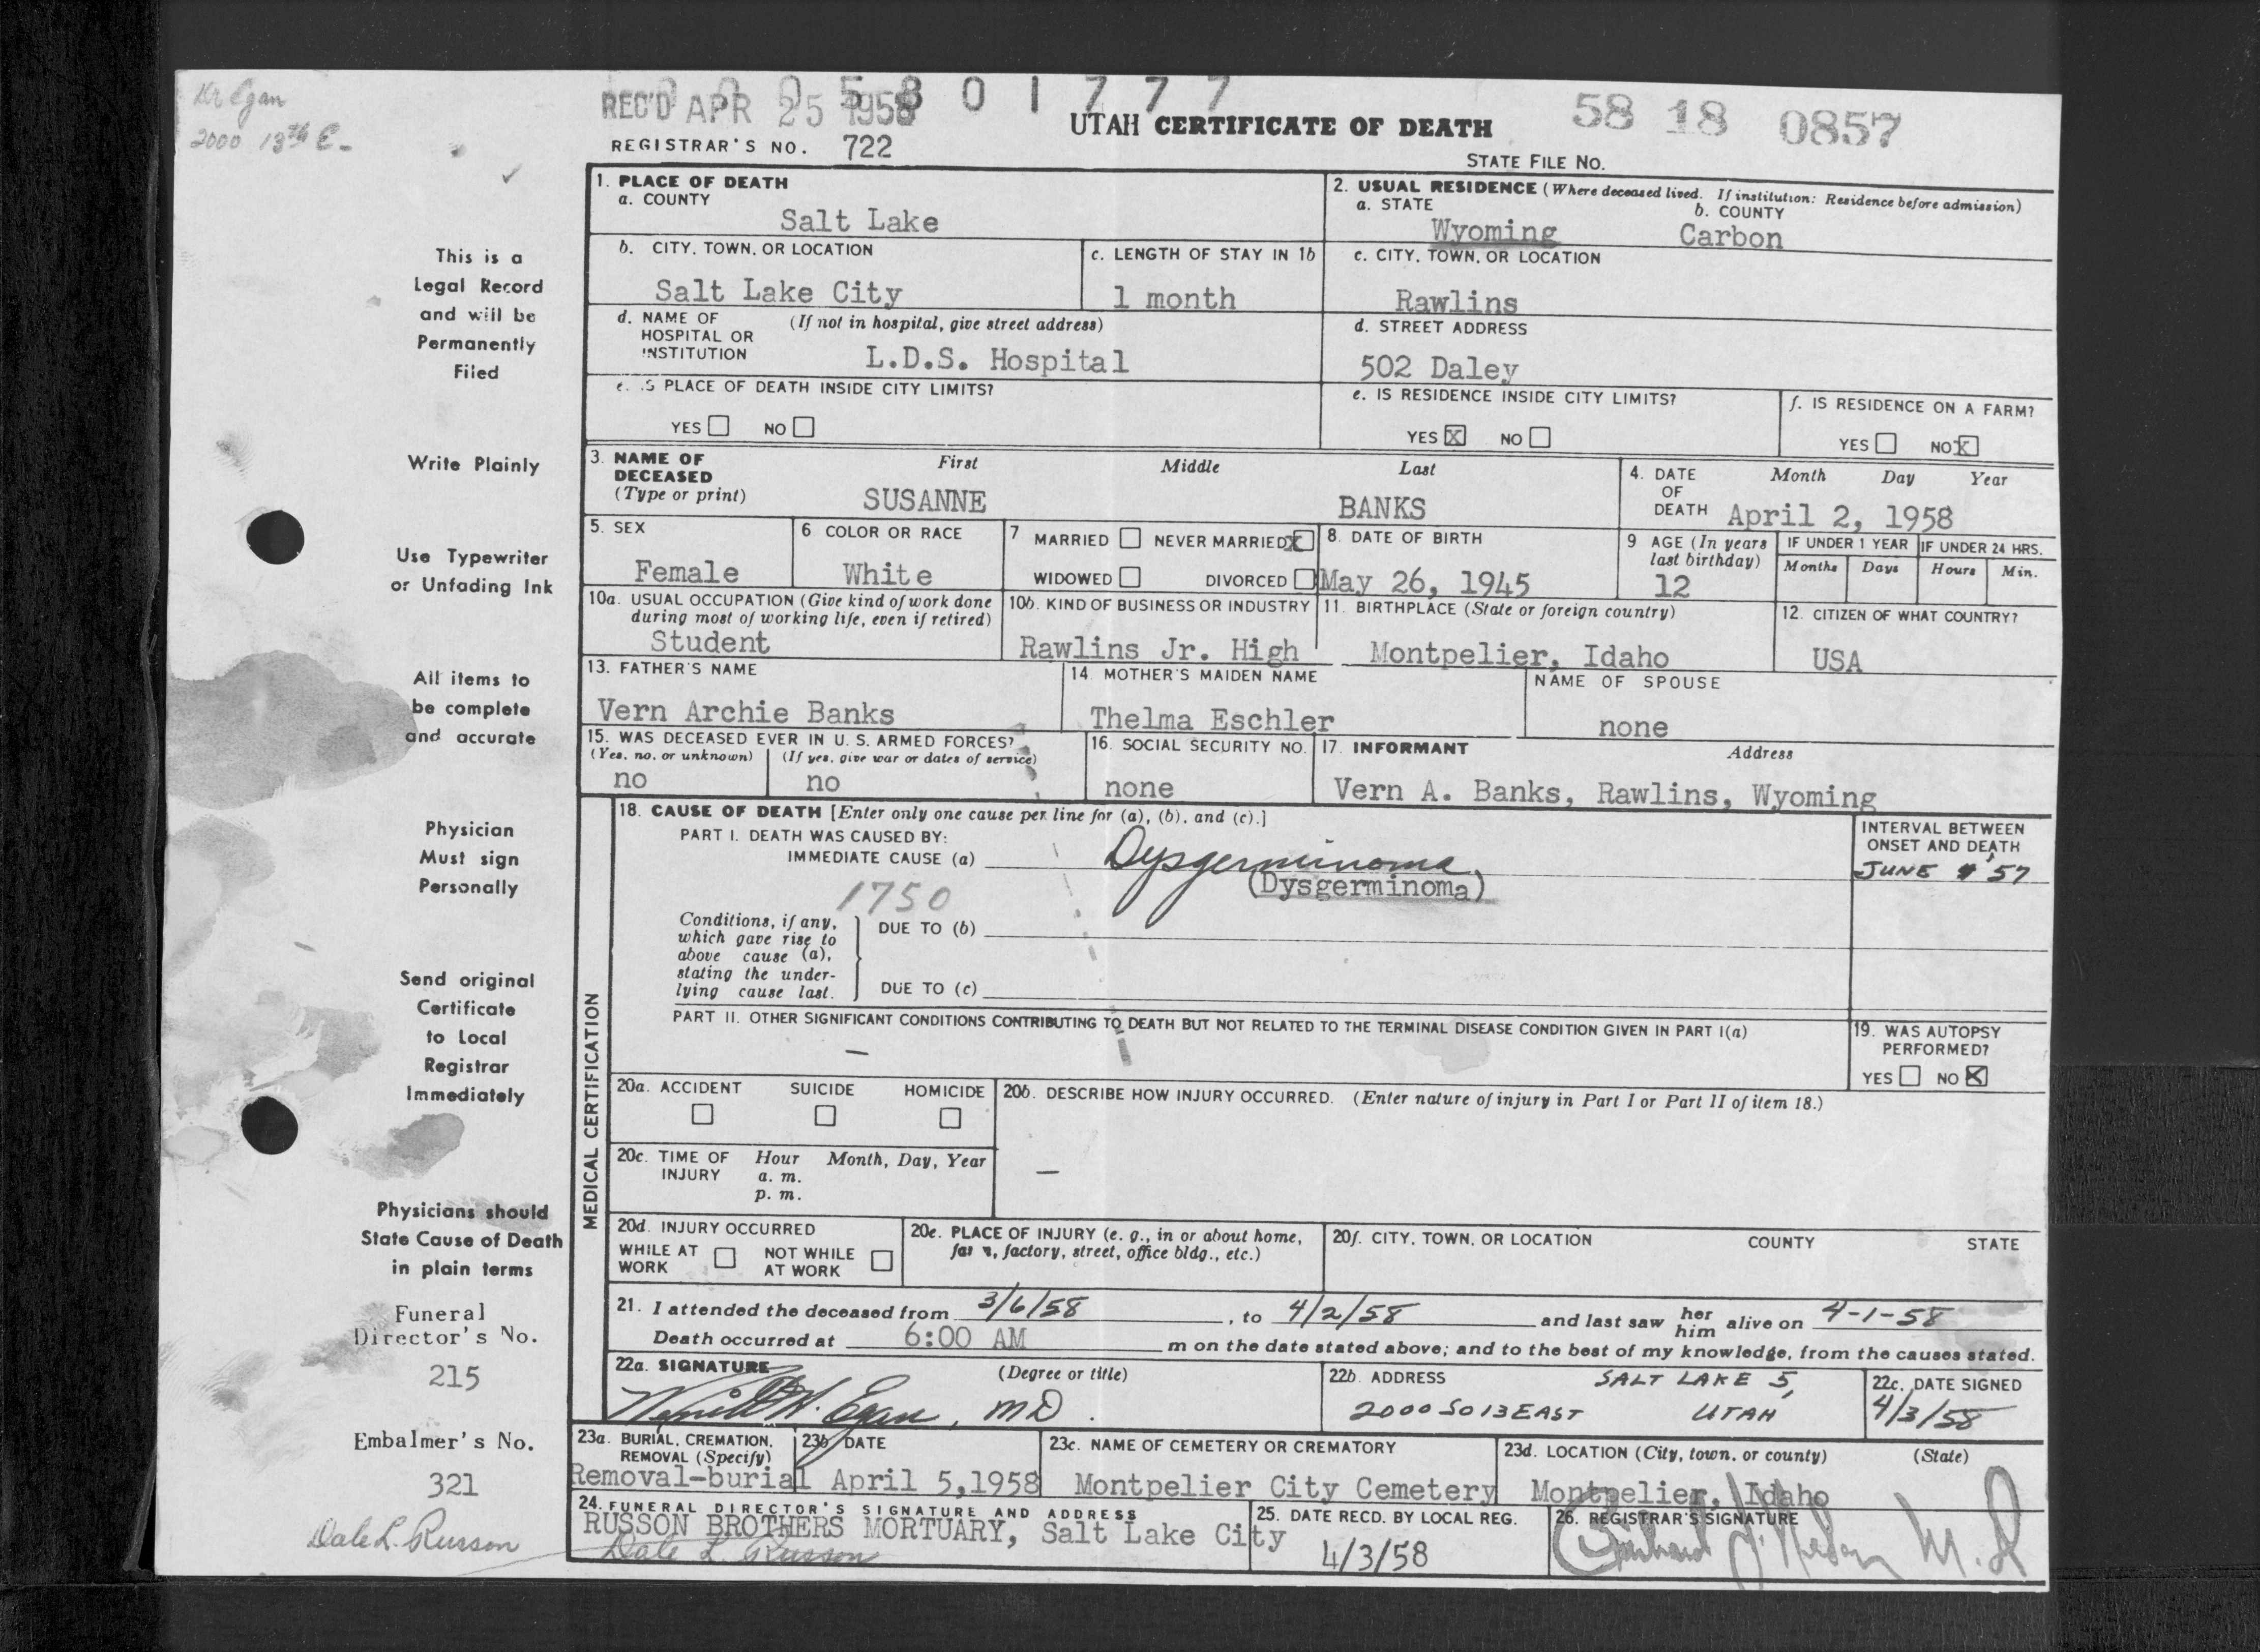 Dr Egan
2000 13th E.
0 0 0 5 8 0 1 7 7 7
REC'D APR 25 1958
58 18 0857
UTAH CERTIFICATE OF DEATH
REGISTRAR'S NO. 722
STATE FILE NO.
This is a
Legal Record
and will be
Permanently
Filed
Write Plainly
Use Typewriter
or Unfading Ink
All items to
be complete
and accurate
Physician
Must sign
Personally
Send original
Certificate
to Local
Registrar
Immediately
Physicians should
State Cause of Death
in plain terms
Funeral
Director's No.
215
Embalmer's No.
321
Dale L. Russon
1. PLACE OF DEATH
a. COUNTY
Salt Lake
2. USUAL RESIDENCE (Where deceased lived. If institution: Residence before admission)
a. STATE
b. COUNTY
Wyoming Carbon
b. CITY, TOWN, OR LOCATION
Salt Lake City
c. LENGTH OF STAY IN 1b
1 month
c. CITY, TOWN, OR LOCATION
Rawlins
d. NAME OF HOSPITAL OR INSTITUTION (If not in hospital, give street address)
L.D.S. Hospital
d. STREET ADDRESS
502 Daley
e. IS PLACE OF DEATH INSIDE CITY LIMITS?
YES NO
e. IS RESIDENCE INSIDE CITY LIMITS?
YES X NO
f. IS RESIDENCE ON A FARM?
YES NO X
3. NAME OF DECEASED (Type or print)
First Middle Last
SUSANNE BANKS
4. DATE OF DEATH
Month Day Year
April 2, 1958
5. SEX
Female
6 COLOR OR RACE
White
7 MARRIED NEVER MARRIED X
WIDOWED DIVORCED
8. DATE OF BIRTH
May 26, 1945
9 AGE (In years last birthday)
12
IF UNDER 1 YEAR
Months Days
IF UNDER 24 HRS.
Hours Min.
10a. USUAL OCCUPATION (Give kind of work done during most of working life, even if retired)
Student
10b. KIND OF BUSINESS OR INDUSTRY
Rawlins Jr. High
11. BIRTHPLACE (State or foreign country)
Montpelier, Idaho
12. CITIZEN OF WHAT COUNTRY?
USA
13. FATHER'S NAME
Vern Archie Banks
14. MOTHER'S MAIDEN NAME
Thelma Eschler
NAME OF SPOUSE
none
15. WAS DECEASED EVER IN U. S. ARMED FORCES?
(Yes, no, or unknown) (If yes, give war or dates of service)
no no
16. SOCIAL SECURITY NO.
none
17. INFORMANT Address
Vern A. Banks, Rawlins, Wyoming
MEDICAL CERTIFICATION
18. CAUSE OF DEATH [Enter only one cause per line for (a), (b), and (c).]
PART I. DEATH WAS CAUSED BY:
IMMEDIATE CAUSE (a) Dysgerminoma
(Dysgerminoma)
1750
INTERVAL BETWEEN ONSET AND DEATH
JUNE '57
Conditions, if any, which gave rise to above cause (a), stating the underlying cause last.
DUE TO (b)
DUE TO (c)
PART II. OTHER SIGNIFICANT CONDITIONS CONTRIBUTING TO DEATH BUT NOT RELATED TO THE TERMINAL DISEASE CONDITION GIVEN IN PART I(a)
—
19. WAS AUTOPSY PERFORMED?
YES NO X
20a. ACCIDENT SUICIDE HOMICIDE
20b. DESCRIBE HOW INJURY OCCURRED. (Enter nature of injury in Part I or Part II of item 18.)
20c. TIME OF INJURY Hour Month, Day, Year
a. m.
p. m.
—
20d. INJURY OCCURRED
WHILE AT WORK NOT WHILE AT WORK
20e. PLACE OF INJURY (e. g., in or about home, farm, factory, street, office bldg., etc.)
20f. CITY, TOWN, OR LOCATION COUNTY STATE
21. I attended the deceased from 3/6/58, to 4/2/58 and last saw her him alive on 4-1-58
Death occurred at 6:00 AM m on the date stated above; and to the best of my knowledge, from the causes stated.
22a. SIGNATURE (Degree or title)
Egan, MD.
22b. ADDRESS
SALT LAKE 5,
2000 SO 13 EAST UTAH
22c. DATE SIGNED
4/3/58
23a. BURIAL, CREMATION, REMOVAL (Specify)
Removal-burial
23b. DATE
April 5,1958
23c. NAME OF CEMETERY OR CREMATORY
Montpelier City Cemetery
23d. LOCATION (City, town, or county) (State)
Montpelier, Idaho
24. FUNERAL DIRECTOR'S SIGNATURE AND ADDRESS
RUSSON BROTHERS MORTUARY, Salt Lake City
Dale L Russon
25. DATE RECD. BY LOCAL REG.
4/3/58
26. REGISTRAR'S SIGNATURE
M.D